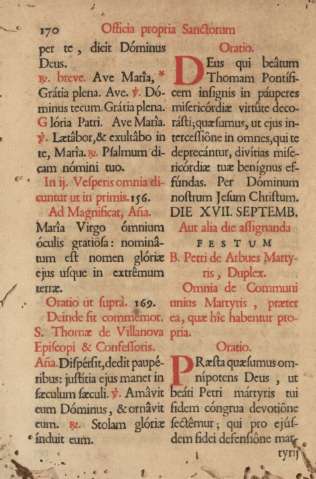 170 Officia propria Sanctorum
per te, dicit Dóminus
Deus.
℟. breve. Ave María, *
Grátia plena. Ave. ℣. Dó-
minus tecum. Grátia plena.
Glória Patri. Ave María.
℣. Lætábor, & exultábo in
te, María. ℟. Psalmum di-
cam nómini tuo.
In ij. Vesperis omnia di-
cuntur ut in primis. 156.
Ad Magnificat, Aña.
María Virgo ómnium
óculis gratiosa: nominá-
tum est nomen glóriæ
ejus usque in extrémum
terræ.
Oratio ut suprà. 169.
Deinde fit commemor.
S. Thomæ de Villanova
Episcopi & Confessoris.
Aña. Dispérsit, dedit paupé-
ribus: justítia ejus manet in
sæculum sæculi. ℣. Amávit
eum Dóminus, & ornávit
eum. ℟. Stolam glóriæ
índuit eum.
Oratio.
DEus qui beátum
Thomam Pontífi-
cem insígnis in páuperes
misericórdiæ virtúte deco-
rásti; quæsumus, ut ejus in-
tercessióne in omnes, qui te
deprecántur, divítias mise-
ricórdiæ tuæ benígnus ef-
fúndas. Per Dóminum
nostrum Jesum Christum.
DIE XVII. SEPTEMB.
Aut alia die assignanda
FESTUM
B. Petri de Arbues Marty-
ris, Duplex.
Omnia de Communi
unius Martyris, præter
ea, quæ hîc habentur pro-
pria.
Oratio.
PRæsta quæsumus om-
nípotens Deus, ut
beáti Petri mártyris tui
fidem cóngrua devotióne
sectémur; qui pro ejús-
dem fídei defensióne mar-
tyrij